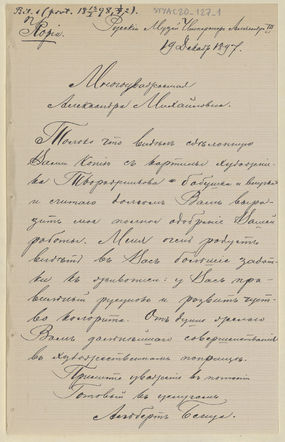 Копія
Русскій Музей Императора Александра III
STYAC20_127_1
19 Декабр 1897.
Многоуважаемая
Александра Михайловна.
Только что видѣлъ сдѣланную
Вами копію съ картины художни-
ка Творожникова "бабушка и внучка"
и считаю долгомъ Вамъ выра-
зить мое полное одобреніе Вашей
работы. Меня очень радуетъ
видѣть въ Васъ большіе задат-
ки къ живописи: у Васъ пра-
вильный рисунокъ и развитъ чувст-
во колорита. Отъ души желаю
Вамъ дальнѣйшаго совершенствованія
въ художественномъ поприщѣ.
Примите увѣреніе въ почтеніи
Готовый къ услугамъ
Альбертъ Бенуа.